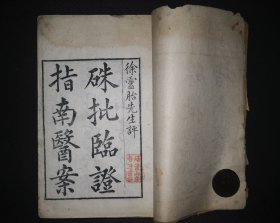 徐靈胎先生評
硃批臨證
指南醫案